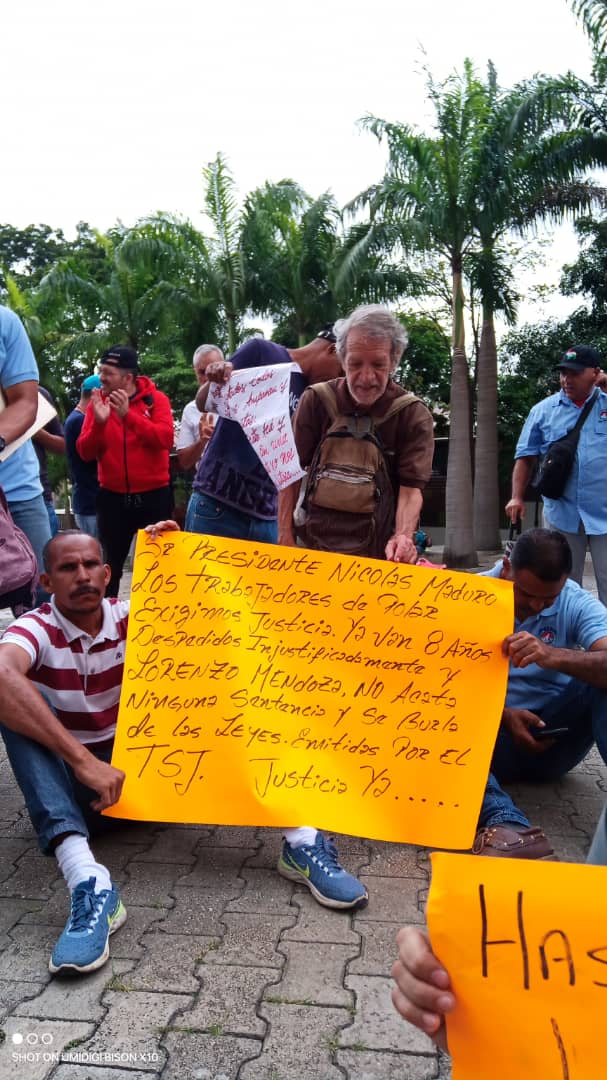 Sr PRESIDENTE NICOLAS MADURO
Los TRABAJADORES de POLAR
Exigimos Justicia. Ya van 8 Años
Despedidos Injustificadamente y
LORENZO MENDOZA, NO Acata
Ninguna Sentencia y Se Burla
de las LEYES. Emitidas POR EL
TSJ. Justicia Ya.....
HAS
SHOT ON UMIDIGI BISON X10